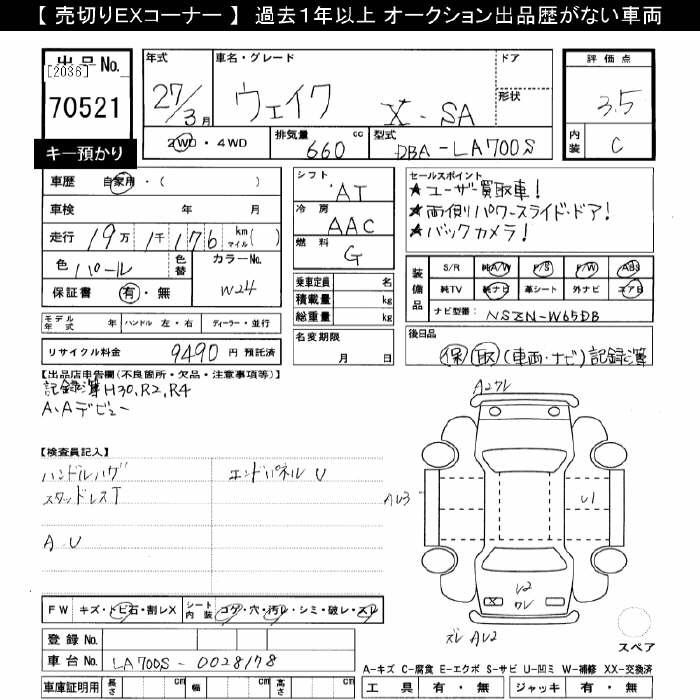 【 売切りEXコーナー 】 過去1年以上 オークション出品歴がない車両
出品No.
[2036]
70521
キー預かり
年式
27/3月
車名・グレード
ウェイク X・SA
ドア
形状
評価点
3.5
内装
C
2WD・4WD
排気量
660 cc
型式
DBA-LA700S
車歴 自家用・( )
車検 年 月
走行 19万1千176 km マイル( )
色 パール
色替
カラーNo.
W24
保証書 有・無
シフト
AT
冷房
AAC
燃料
G
乗車定員 名
積載量 kg
総重量 kg
セールスポイント
★ユーザー買取車!
★両側パワースライド・ドア!
★バックカメラ!
装備品
S/R 純A/W P/S P/W ABS
純TV 純ナビ 革シート 外ナビ エアB
ナビ型番: NSZN-W65DB
モデル年式 年 ハンドル 左・右 ディーラー・並行
リサイクル料金 9490 円 預託済
名変期限
月 日
後日品
保 取 (車両・ナビ) 記録簿
【出品店申告欄(不良箇所・欠品・注意事項等)】
記録簿H30.R2.R4
A.Aデビュー
【検査員記入】
ハンドルハゲ エンドパネルU
スタッドレスT
A.U
A2 ワレ
AU3
U1
U2
ワレ
スレ AU2
スペア
FW キズ・トビ石・割レX
シート内装 コゲ・穴・汚レ・シミ・破レ・スレ
登録No.
車台No. LA700S-0028178
車庫証明用 長さ cm 幅 cm 高さ cm
A-キズ C-腐食 E-エクボ S-サビ U-凹ミ W-補修 XX-交換済
工具 有・無 ジャッキ 有・無